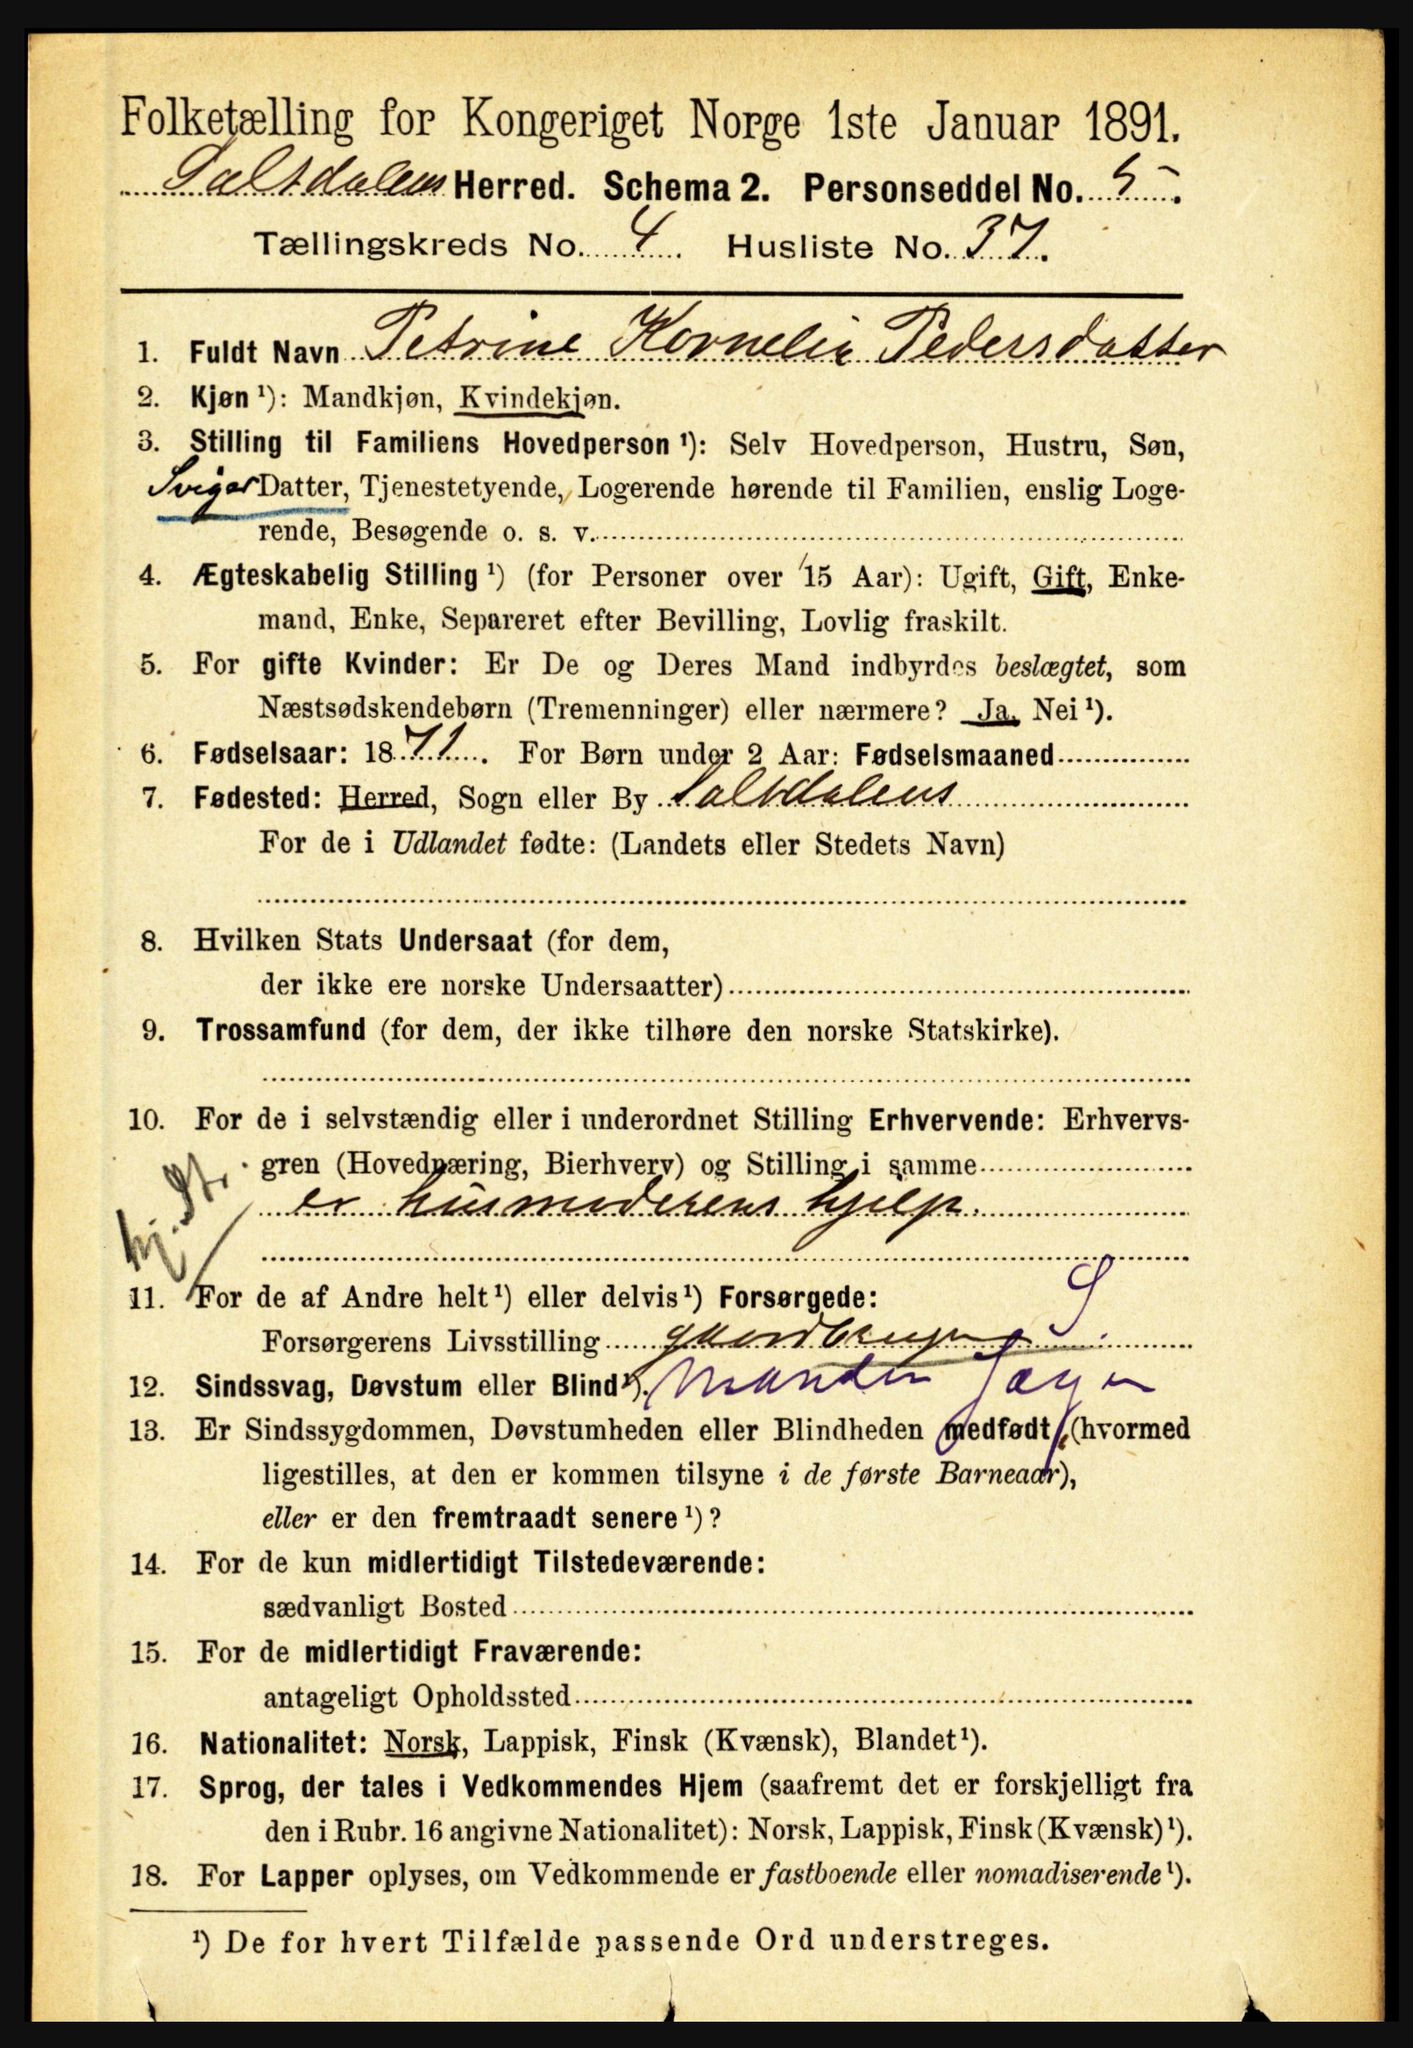 Folketælling for Kongeriget Norge 1ste Januar 1891.
Saltdalens Herred. Schema 2. Personseddel No. 5.
Tællingskreds No. 4. Husliste No. 37.
1. Fuldt Navn Petrine Kornelia Pedersdatter
2. Kjøn ¹): Mandkjøn, Kvindekjøn.
3. Stilling til Familiens Hovedperson ¹): Selv Hovedperson, Hustru, Søn,
Sviger Datter, Tjenestetyende, Logerende hørende til Familien, enslig Loge-
rende, Besøgende o. s. v.
4. Ægteskabelig Stilling ¹) (for Personer over 15 Aar): Ugift, Gift, Enke-
mand, Enke, Separeret efter Bevilling, Lovlig fraskilt.
5. For gifte Kvinder: Er De og Deres Mand indbyrdes beslægtet, som
Næstsødskendebørn (Tremenninger) eller nærmere? Ja, Nei ¹).
6. Fødselsaar: 1871. For Børn under 2 Aar: Fødselsmaaned
7. Fødested: Herred, Sogn eller By Saltdalens
For de i Udlandet fødte: (Landets eller Stedets Navn)
8. Hvilken Stats Undersaat (for dem,
der ikke ere norske Undersaatter)
9. Trossamfund (for dem, der ikke tilhøre den norske Statskirke).
10. For de i selvstændig eller i underordnet Stilling Erhvervende: Erhvervs-
gren (Hovednæring, Bierhverv) og Stilling i samme
er husmoderens hjelp.
11. For de af Andre helt ¹) eller delvis ¹) Forsørgede:
Forsørgerens Livsstilling gaardbruger S
12. Sindssvag, Døvstum eller Blind ¹). Manden
13. Er Sindssygdommen, Døvstumheden eller Blindheden medfødt, (hvormed
ligestilles, at den er kommen tilsyne i de første Barneaar),
eller er den fremtraadt senere ¹)?
14. For de kun midlertidigt Tilstedeværende:
sædvanligt Bosted
15. For de midlertidigt Fraværende:
antageligt Opholdssted
16. Nationalitet: Norsk, Lappisk, Finsk (Kvænsk), Blandet ¹).
17. Sprog, der tales i Vedkommendes Hjem (saafremt det er forskjelligt fra
den i Rubr. 16 angivne Nationalitet): Norsk, Lappisk, Finsk (Kvænsk) ¹).
18. For Lapper oplyses, om Vedkommende er fastboende eller nomadiserende ¹).
¹) De for hvert Tilfælde passende Ord understreges.